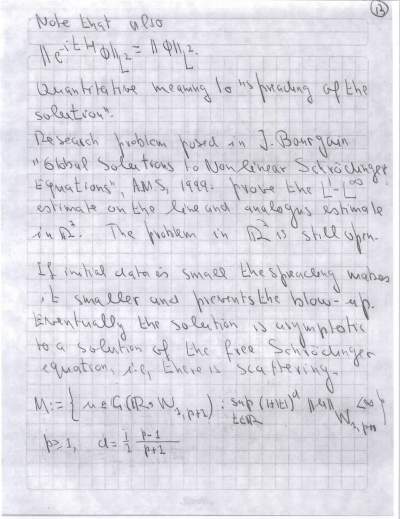 13
Note that also
‖e^{-itH}φ‖_{L^2} = ‖φ‖_{L^2}.
Quantitative meaning to "spreading of the
solution".
Research problem posed in J. Bourgain
"Global Solutions to Nonlinear Schrödinger
Equations", AMS, 1999. prove the L^1-L^∞
estimate on the line and analogus estimate
in ℝ^2. The problem in ℝ^2 is still open.
If initial data is small the spreading makes
it smaller and prevents the blow-up.
Eventually the solution is asymptotic
to a solution of the free Schrödinger
equation, i.e, there is scattering.
M := { u ∈ C(ℝ, W_{1,p+1}) : sup_{t∈ℝ} (1+|t|)^d ‖u‖_{W_{1,p+1}} < ∞ }
p ≥ 1, d = 1/2 (p-1)/(p+1)